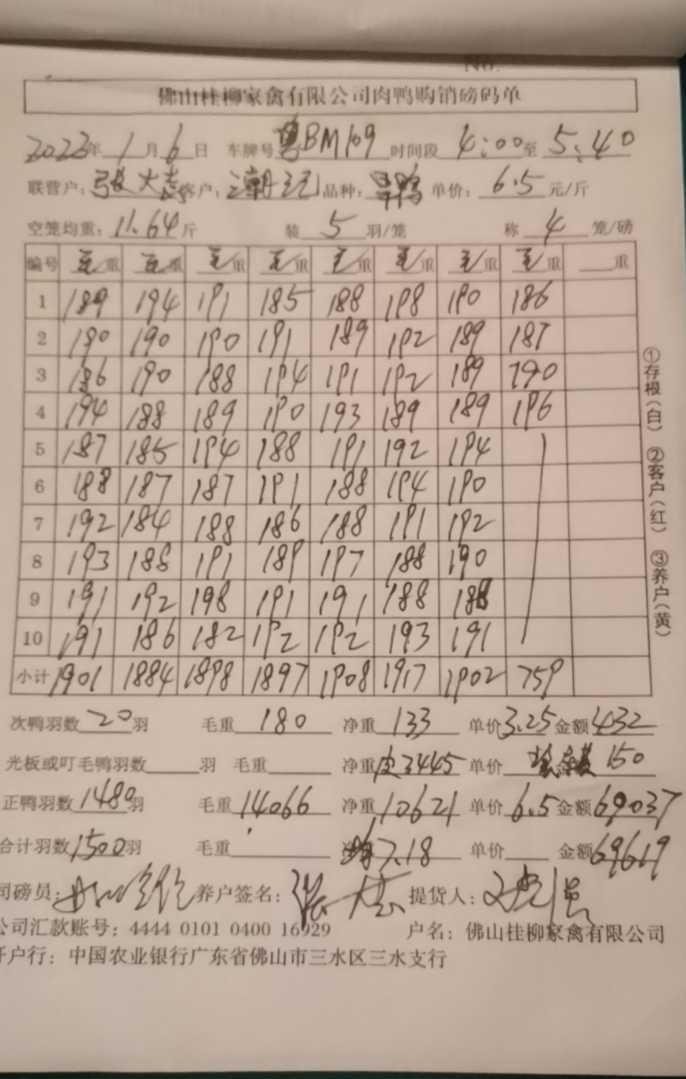 No.
佛山桂柳家禽有限公司肉鸭购销磅码单
2023年1月6日 车牌号粤BM109 时间段4:00至5:40
联营户:张大志 客户:潮记 品种: 单价:6.5元/斤
空笼均重:11.64斤 装5羽/笼 称4笼/磅
编号 毛重 毛重 毛重 毛重 毛重 毛重 毛重 毛重 重
1 189 194 191 185 188 198 190 186
2 190 190 190 191 189 192 189 187
3 186 190 188 194 191 192 189 190
4 194 188 189 190 193 189 189 196
5 187 185 194 188 191 192 194
6 188 187 187 191 188 194 190
7 192 184 188 186 188 191 192
8 193 188 191 189 197 188 190
9 191 192 198 191 191 188 188
10 191 186 182 192 192 193 191
小计 1901 1884 1898 1897 1908 1917 1902 759
次鸭羽数20羽 毛重180 净重133 单价3.25金额432
光板或叮毛鸭羽数羽 毛重 净重皮3445 单价 150
正鸭羽数1480羽 毛重14066 净重10621 单价6.5金额69037
合计羽数1500羽 毛重 均7.18 单价 金额69619
司磅员: 养户签名:张大志 提货人:
公司汇款账号:4444 0101 0400 16929 户名:佛山桂柳家禽有限公司
开户行:中国农业银行广东省佛山市三水区三水支行
①存根(白) ②客户(红) ③养户(黄)